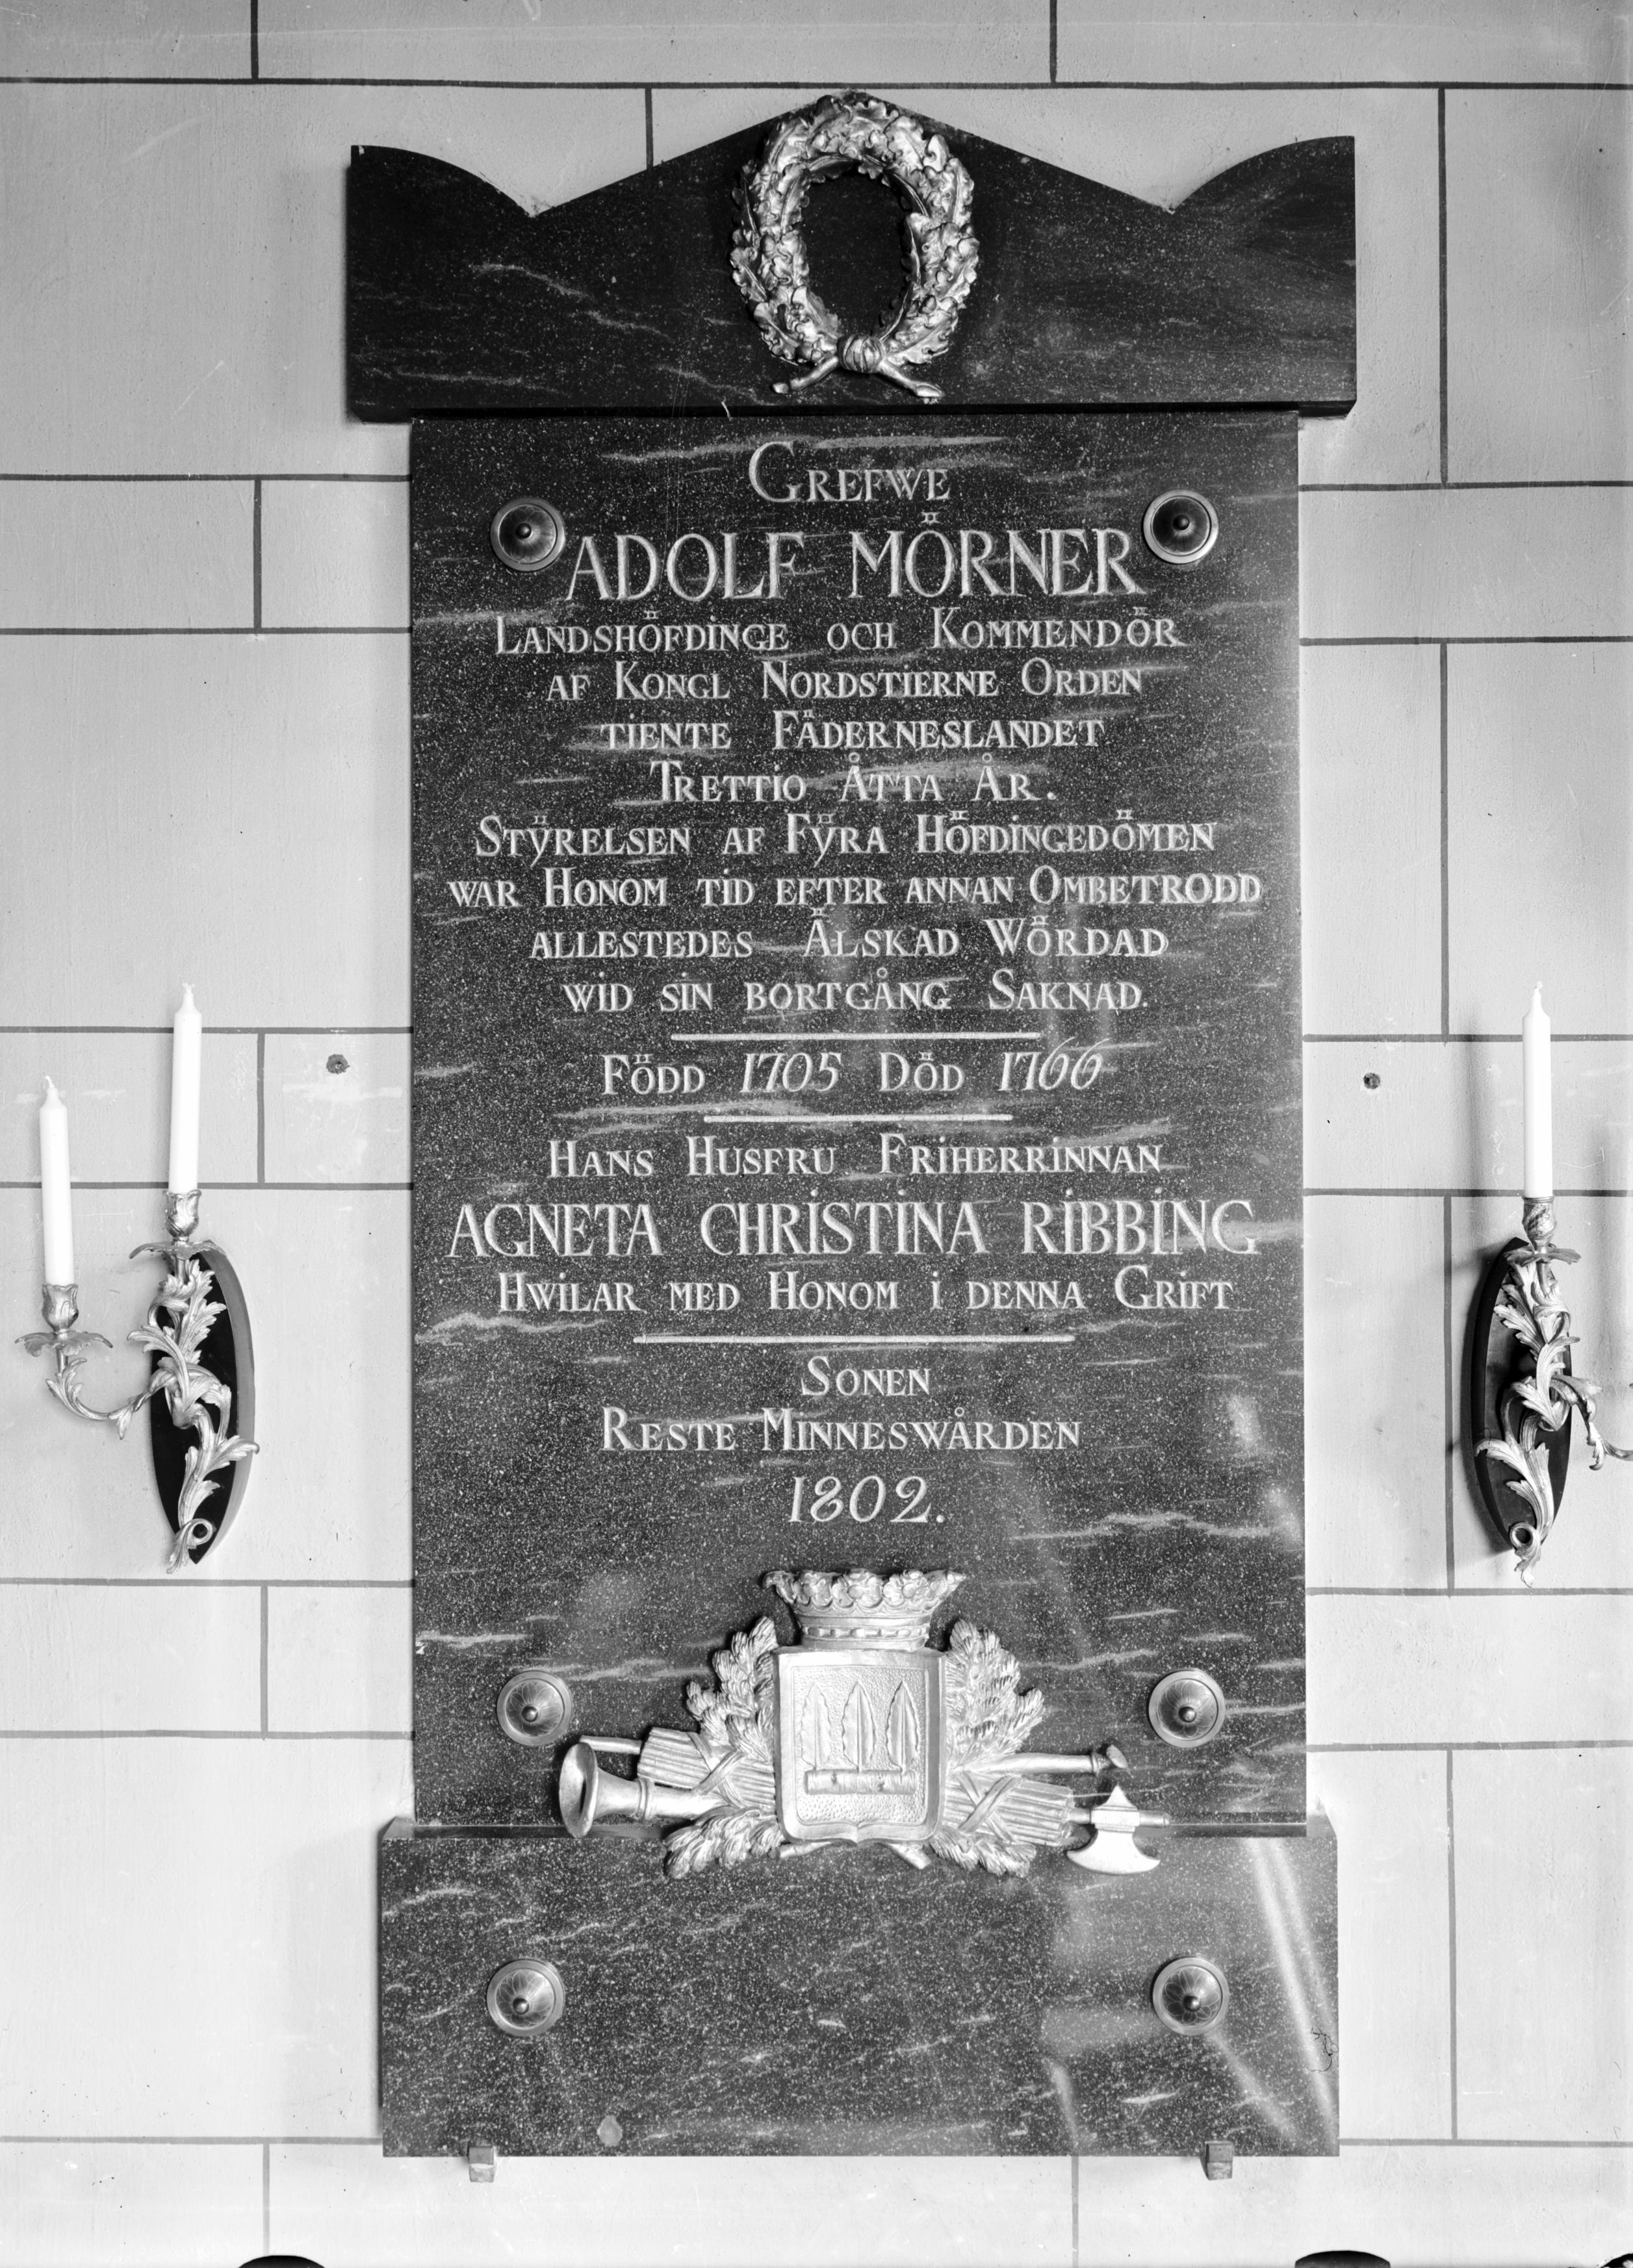 GREFWE
ADOLF MÖRNER
LANDSHÖFDINGE OCH KOMMENDÖR
AF KONGL NORDSTIERNE ORDEN
TIENTE FÄDERNESLANDET
TRETTIO ÅTTA ÅR.
STŸRELSEN AF FŸRA HÖFDINGEDÖMEN
WAR HONOM TID EFTER ANNAN OMBETRODD
ALLESTEDES ÄLSKAD WÖRDAD
WID SIN BORTGÅNG SAKNAD.
FÖDD 1705 DÖD 1766
HANS HUSFRU FRIHERRINNAN
AGNETA CHRISTINA RIBBING
HWILAR MED HONOM I DENNA GRIFT
SONEN
RESTE MINNESWÅRDEN
1802.